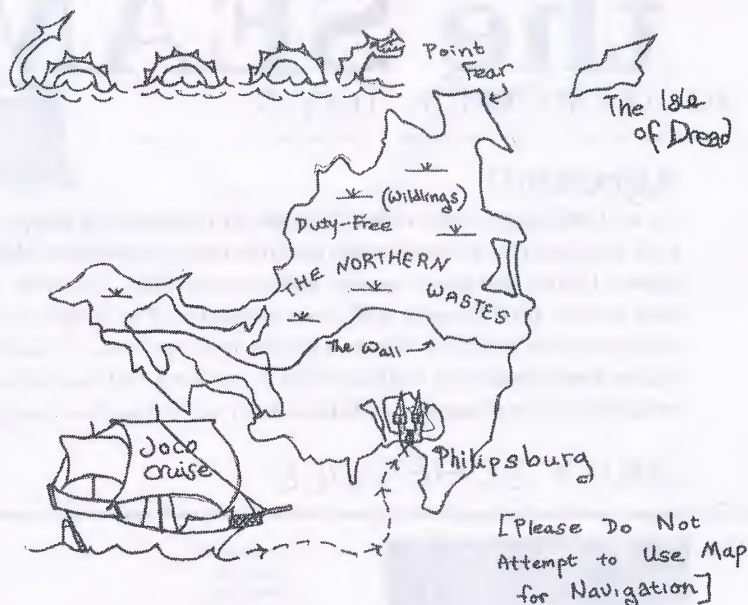 Point
Fear
The Isle
of Dread
(Wildlings)
Duty-Free
THE NORTHERN
WASTES
The Wall
Joco
cruise
Philipsburg
[Please Do Not
Attempt to Use Map
for Navigation]